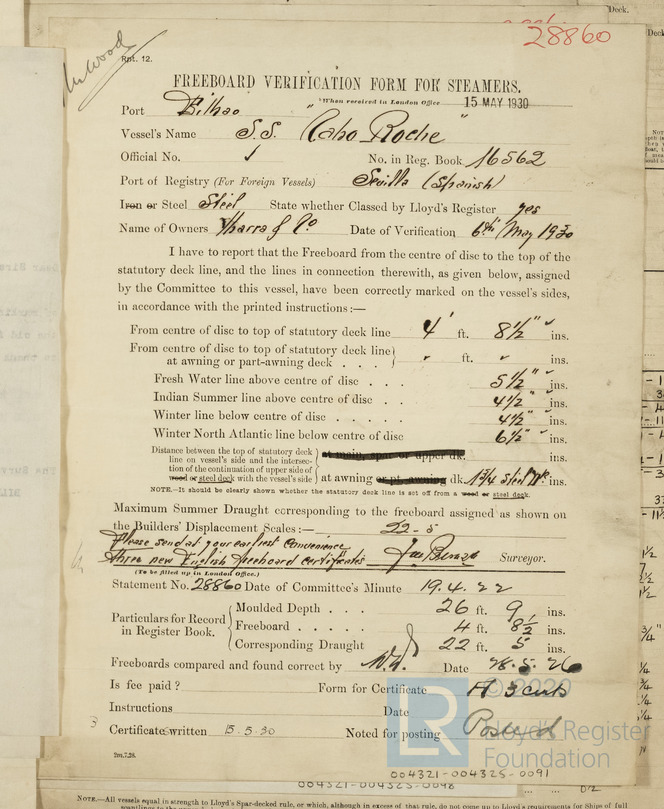 28860
Rpt. 12.
FREEBOARD VERIFICATION FORM FOR STEAMERS.
Port Bilbao When received in London Office 15 MAY 1930
Vessel's Name S.S. "Cabo Roche"
Official No. No. in Reg. Book 16562
Port of Registry (For Foreign Vessels) Sevilla (Spanish)
Iron or Steel Steel State whether Classed by Lloyd's Register yes
Name of Owners Ybarra & Co Date of Verification 6th May 1930
I have to report that the Freeboard from the centre of disc to the top of the
statutory deck line, and the lines in connection therewith, as given below, assigned
by the Committee to this vessel, have been correctly marked on the vessel's sides,
in accordance with the printed instructions:—
From centre of disc to top of statutory deck line 4' ft. 8½" ins.
From centre of disc to top of statutory deck line
at awning or part-awning deck . . . " ft. " ins.
Fresh Water line above centre of disc . . . 5½" ins.
Indian Summer line above centre of disc . . 4½" ins.
Winter line below centre of disc . . . . . 4½" ins.
Winter North Atlantic line below centre of disc 6½" ins.
Distance between the top of statutory deck
line on vessel's side and the intersec-
tion of the continuation of upper side of
wood or steel deck with the vessel's side
at main, spar or upper dk. ins.
at awning or pt. awning dk. 1¾ Steel Dk ins.
NOTE.—It should be clearly shown whether the statutory deck line is set off from a wood or steel deck.
Maximum Summer Draught corresponding to the freeboard assigned as shown on
the Builders' Displacement Scales:— 22-5
Please send at your earliest convenience
three new English freeboard certificates Surveyor.
(To be filled up in London Office.)
Statement No. 28860 Date of Committee's Minute 19.4.22
Particulars for Record
in Register Book.
Moulded Depth . . . 26 ft. 9 ins.
Freeboard . . . . . 4 ft. 8½ ins.
Corresponding Draught 22 ft. 5 ins.
Freeboards compared and found correct by Date 28.5.26
Is fee paid? Form for Certificate A 3 certs
Instructions Date
Certificate written 15.5.30 Noted for posting Posted
2m,7,28.
© 2020
LR
Lloyd's Register
Foundation
004321-004325-0091
NOTE.—All vessels equal in strength to Lloyd's Spar-decked rule, or which, although in excess of that rule, do not come up to Lloyd's requirements for Ships of full